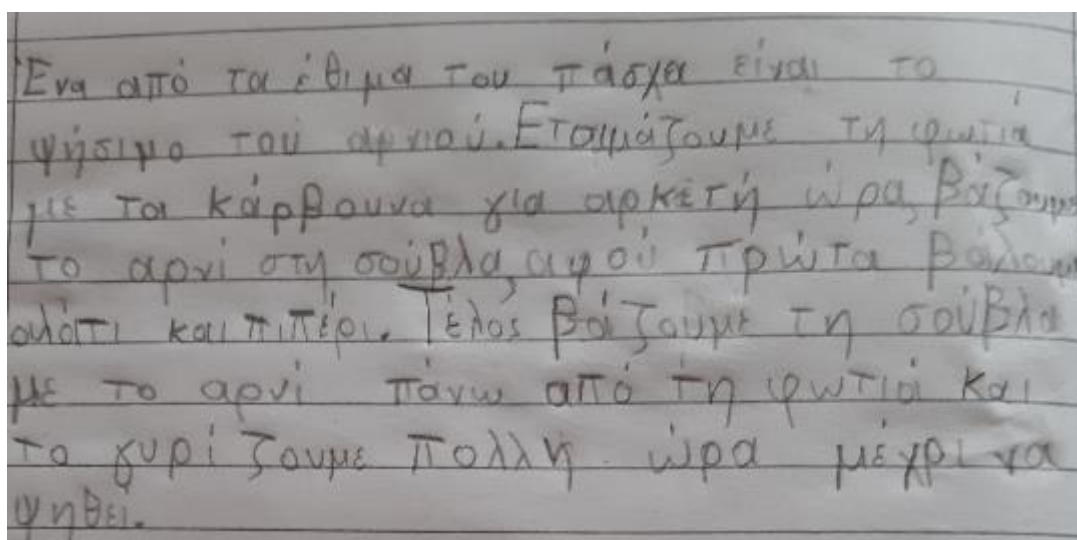 Ένα από τα έθιμα του πάσχα είναι το
ψήσιμο του αρνιού. Ετοιμάζουμε τη φωτιά
με τα κάρβουνα για αρκετή ώρα, βάζουμε
το αρνί στη σούβλα, αφού πρώτα βάλουμε
αλάτι και πιπέρι. Τέλος βάζουμε τη σούβλα
με το αρνί πάνω από τη φωτιά και
το γυρίζουμε πολλή ώρα μέχρι να
ψηθεί.